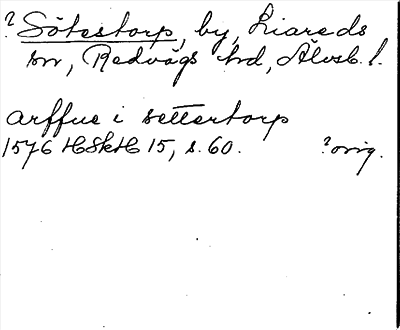 ? Sötestorp, by, Liareds
sn, Redvägs hd, Älvsb. l.
arffue i settertorp
1576 HSkH 15, s. 60. ? orig.